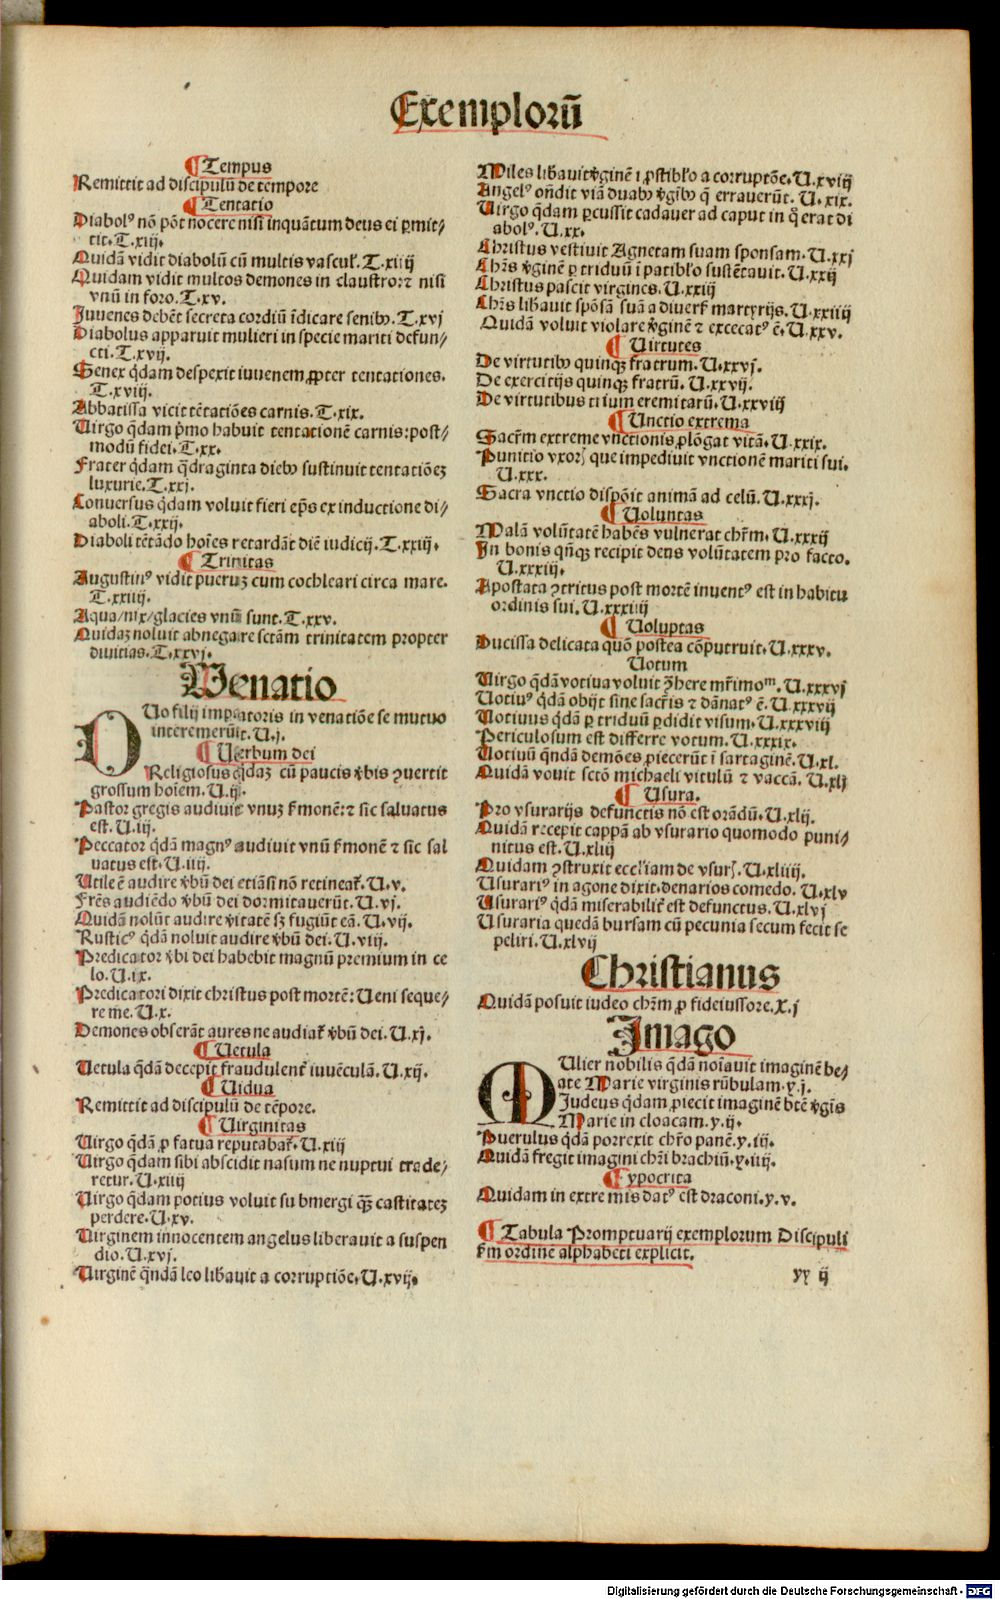 Exemplorū
¶ Tempus
Remittit ad discipulū de tempore
¶ Tentatio
Diabolꝰ nō pōt nocere nisi inquātum deus ei ꝑmit/
tit. T. xiij.
Quidā vidit diabolū cū multis vasculꝭ. T. xiiij
Quidam vidit multos demones in claustro: ⁊ nisi
vnū in foro. T. xv.
Juvenes debēt secreta cordiū īdicare senibꝰ. T. xvj
Diabolus apparuit mulieri in specie mariti defun/
cti. T. xvij.
Senex qͥdam despexit iuvenem ꝓpter tentationes.
T. xviij.
Abbatissa vicit tētatiōes carnis. T. xix.
Uirgo qͣdam pͥmo habuit tentationē carnis: post/
modū fidei. T. xx.
Frater qͥdam qͣdraginta diebꝰ sustinuit tentatiōeꝫ
luxurie. T. xxj.
Conversus qͥdam voluit fieri ep̄s ex inductione di/
aboli. T. xxij.
Diaboli tētādo hoīes retardāt diē iudicij. T. xxiij.
¶ Trinitas
Augustinꝰ vidit pueruꝫ cum cochleari circa mare.
T. xxiiij.
Aqua/nix/glacies vnū sunt. T. xxv.
Quidaꝫ noluit abnegare sctām trinitatem propter
divitias. T. xxvj.
Venatio
DUo filij imꝑatoris in venatiōe se mutuo
interemerūt. U. j.
¶ Uerbum dei
Religiosus qͥdaꝫ cū paucis v̄bis ꝯvertit
grossum hoīem. U. ij.
Pastor gregis audivit vnuꝫ s̄monē: ⁊ sic salvatus
est. U. iij.
Peccator qͥdā magnꝰ audivit vnū s̄monē ⁊ sic sal
vatus est. U. iiij.
Utile ē audire v̄bū dei etiāsi nō retineatꝭ. U. v.
Frēs audiēdo v̄bū dei dormitaverūt. U. vj.
Quidā nolūt audire v̄itatē sꝫ fugiūt eā. U. vij.
Rusticꝰ qͥdā noluit audire v̄bū dei. U. viij.
Predicator v̄bi dei habebit magnū premium in ce
lo. U. ix.
Predicatori dixit christus post mortē: Ueni seque/
re me. U. x.
Demones obserāt aures ne audiatꝭ v̄bū dei. U. xj.
¶ Uetula
Uetula qͣdā decepit fraudulentꝭ iuvēculā. U. xij.
¶ Uidua
Remittit ad discipulū de tēpore.
¶ Uirginitas
Uirgo qͣdā ꝓ fatua reputabatꝭ. U. xiij
Uirgo qͣdam sibi abscidit nasum ne nuptui trade/
retur. U. xiiij
Uirgo qͣdam potius voluit submergi qͣꝫ castitateꝫ
perdere. U. xv.
Uirginem innocentem angelus liberavit a suspen
dio. U. xvj.
Uirginē qͣndā leo lib̄avit a corruptiōe. U. xvij.
Miles lib̄avit v̄ginē ī ꝓstibl̄o a corruptōe. U. xviij
Angelꝰ on̄dit viā duabꝰ v̄gībꝰ q̄ erraverūt. U. xix.
Uirgo qͣdam ꝑcussit cadaver ad caput in q̄ erat di
abolꝰ. U. xx.
Christus vestivit Agnetam suam sponsam. U. xxj
Chr̄s v̄ginē ꝑ triduū ī patibl̄o sustētavit. U. xxij
Christus pascit virgines. U. xxiij
Chr̄s lib̄avit spōsā suā a diversꝭ martyrijs. U. xxiiij
Quidā voluit violare v̄ginē ⁊ excecatꝰ ē. U. xxv.
¶ Uirtutes
De virtutibꝰ quinqꝫ fratrum. U. xxvj.
De exercitijs quinqꝫ fratrū. U. xxvij.
De virtutibus trium eremitarū. U. xxviij
¶ Unctio extrema
Sacr̄m extreme vnctionis ꝓlōgat vitā. U. xxix.
Punitio vxorꝭ que impedivit vnctionē mariti sui.
U. xxx.
Sacra vnctio dispōit animā ad celū. U. xxxj.
¶ Uoluntas
Malā volūtatē habēs vulnerat chr̄m. U. xxxij
In bonis qn̄qꝫ recipit deus volūtatem pro facto.
U. xxxiij.
Apostata ꝯtritus post mortē inventꝰ est in habitu
ordinis sui. U. xxxiiij
¶ Uoluptas
Ducissa delicata quō postea cōputruit. U. xxxv.
Uotum
Uirgo qͣdā votiva voluit ꝯ̄here mr̄imoᵐ. U. xxxvj
Uotivꝰ qͥdā obijt sine sacr̄is ⁊ dānatꝰ ē. U. xxxvij
Uotivus qͥdā ꝑ triduū ꝑdidit visum. U. xxxviij
Periculosum est differre votum. U. xxxix.
Uotivū qn̄dā demōes ꝓiecerūt ī sartaginē. U. xl.
Quidā vovit sctō michaeli vitulū ⁊ vaccā. U. xlj
¶ Usura.
Pro vsurarijs defunctis nō est orādū. U. xlij.
Quidā recepit cappā ab vsurario quomodo puni/
nitus est. U. xliij
Quidam ꝯstruxit eccl̄iam de vsurꝭ. U. xliiij.
Usurariꝰ in agone dixit. denarios comedo. U. xlv
Usurariꝰ qͥdā miserabilitꝭ est defunctus. U. xlvj
Usuraria quedā bursam cū pecunia secum fecit se
peliri. U. xlvij
Christianus
Quidā posuit iudeo chr̄m ꝓ fideiussore. X. j
Jmago
MUlier nobilis qͣdā noīavit imaginē be/
ate Marie virginis rūbulam. y. j.
Judeus qͥdam ꝓiecit imaginē btē v̄gīs
Marie in cloacam. y. ij.
Puerulus qͥdā porrexit chr̄o panē. y. iij.
Quidā fregit imagini chr̄i brachiū. y. iiij.
¶ Ypocrita
Quidam in extremis datꝰ est draconi. y. v.
¶ Tabula Promptuarij exemplorum Discipuli
s̄m ordinē alphabeti explicit.
yy ij
Digitalisierung gefördert durch die Deutsche Forschungsgemeinschaft - DFG